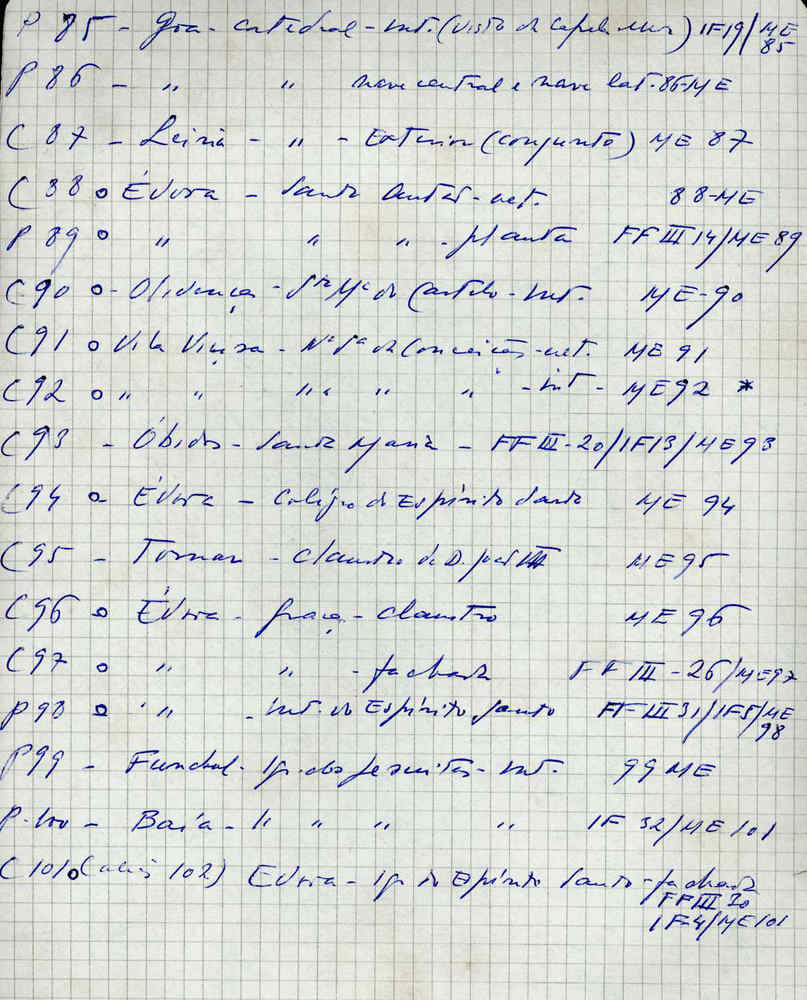 P 85 - Goa - catedral - int. (visto da Capela-mor) IF19/ME 85
P 86 - " " nave central e nave lat. 86-ME
C 87 - Leiria - " - Exterior (conjunto) ME 87
C 88 o Évora - Santo Antão - ext. 88-ME
P 89 o " " " - planta FF III 14/ME 89
C 90 o - Olivença - Sta Mª do Castelo - Int. ME-90
C 91 o Vila Viçosa - Nª Sª da Conceição - ext. ME 91
C 92 o " " " " " " - int - ME 92 *
C 93 - Óbidos - Santa Maria - FF III-20/IF13/ME 93
C 94 o Évora - Colégio do Espírito Santo ME 94
C 95 - Tomar - Claustro de D. João III ME 95
C 96 o Évora - Graça - Claustro ME 96
C 97 o " " - fachada FF III - 26/ME 97
P 98 o " - int. do Espírito Santo FF III 31/IF5/ME 98
P 99 - Funchal - Igr. dos Jesuítas - Int. 99 ME
P. 100 - Baía - " " " " IF 32/ME 101
C 101 o (aliás 102) Évora - Igr. do Espírito Santo - fachada
FF III 30
IF-4/ME 101